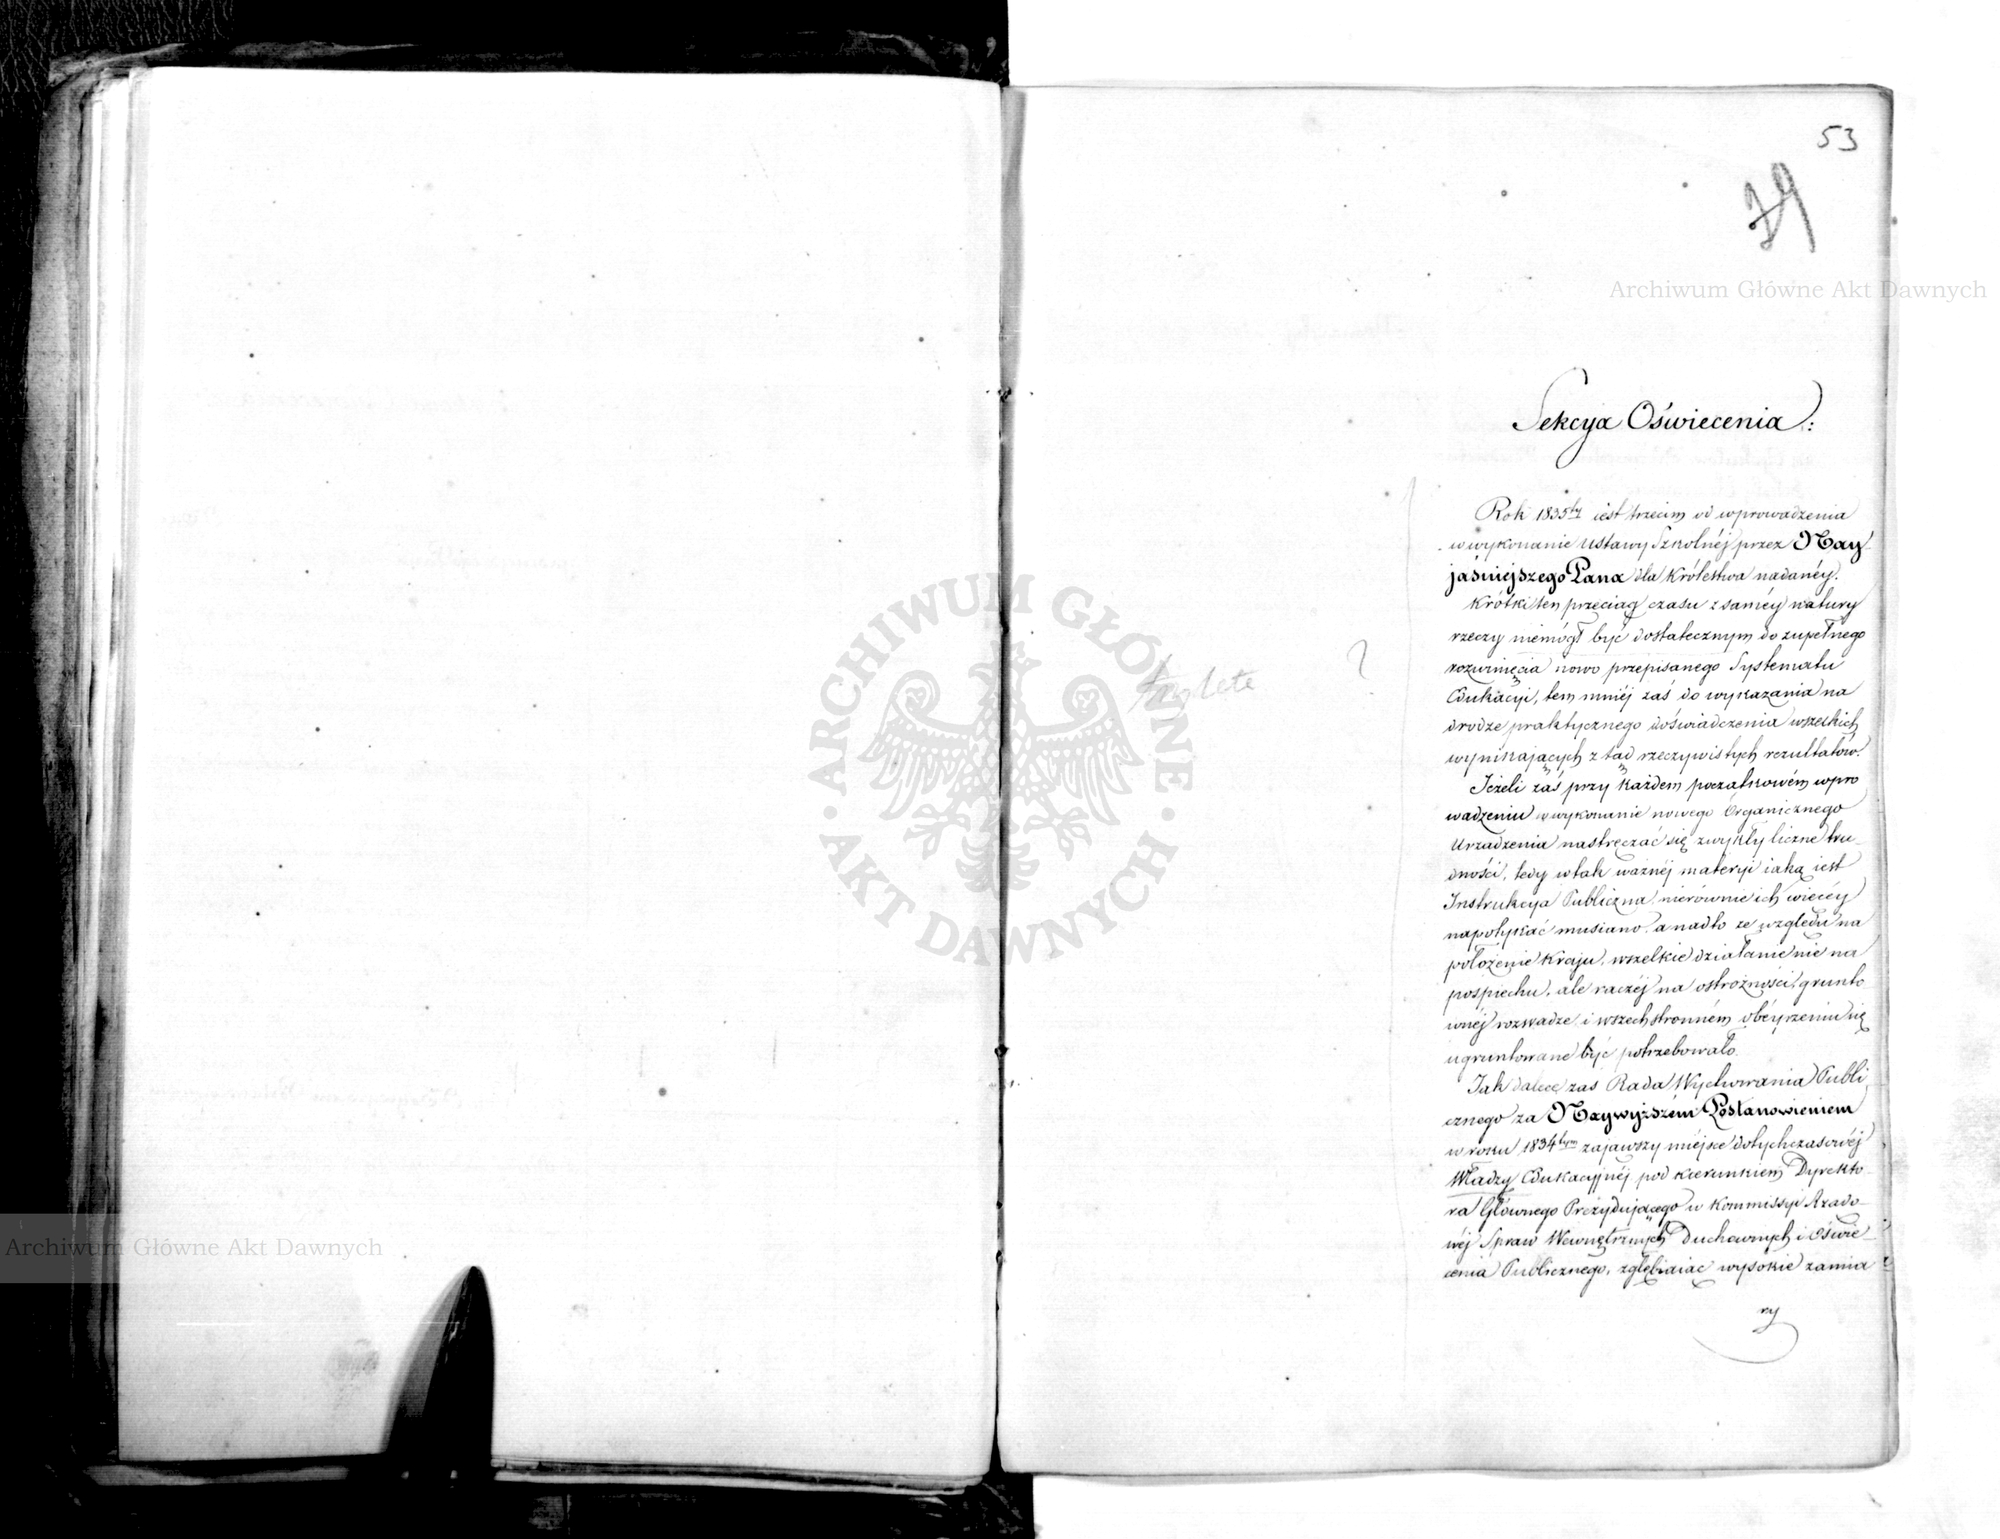 53
Archiwum Główne Akt Dawnych
Sekcyja Oświecenia:
Rok 1835ty iest trzecim od wprowadzenia
w wykonanie ustawy Szkolnéj przez Nay-
jaśniejszego Pana dla Królestwa nadanéy.
Krótki ten przeciąg czasu z saméy natury
rzeczy niemógł być dostatecznym do zupełnego
rozwinięcia nowo przepisanego Systematu
Edukacyi, tem mniéj zaś do wykazania na
drodze praktycznego doświadczenia wszelkich
wynikających z tąd rzeczywistych rezultatów.
Jeżeli zaś przy każdem początkowém wpro
wadzeniu w wykonanie nowego Organicznego
Urządzenia nastręczać się zwykły liczne tru-
dności, tedy w tak ważnéj materyi iaką iest
Instrukcya Publiczna, nierównie ich więcéy
napotykać musiano, a nadto ze względu na
położenie Kraju, wszelkie działanie nie na
pospiechu, ale raczéj na ostrożności, grunto
wnéj rozwadze i wszechstronném obéyrzeniu się
ugruntowane być potrzebowało.
Jak dalece zaś Rada Wychowania Publi
cznego za Naywyższém Postanowieniem
w roku 1834tym zająwszy miéjsce dotychczasowéj
Władzy Edukacyjnéj pod kierunkiem Dyrekto-
ra Głównego Prezydującego w Kommissyi Rządo-
wéj Spraw Wewnętrznych Duchownych i Oświe-
cenia Publicznego, zgłębiaiąc wysokie zamia
ry
ARCHIWUM GŁÓWNE
AKT DAWNYCH
Archiwum Główne Akt Dawnych